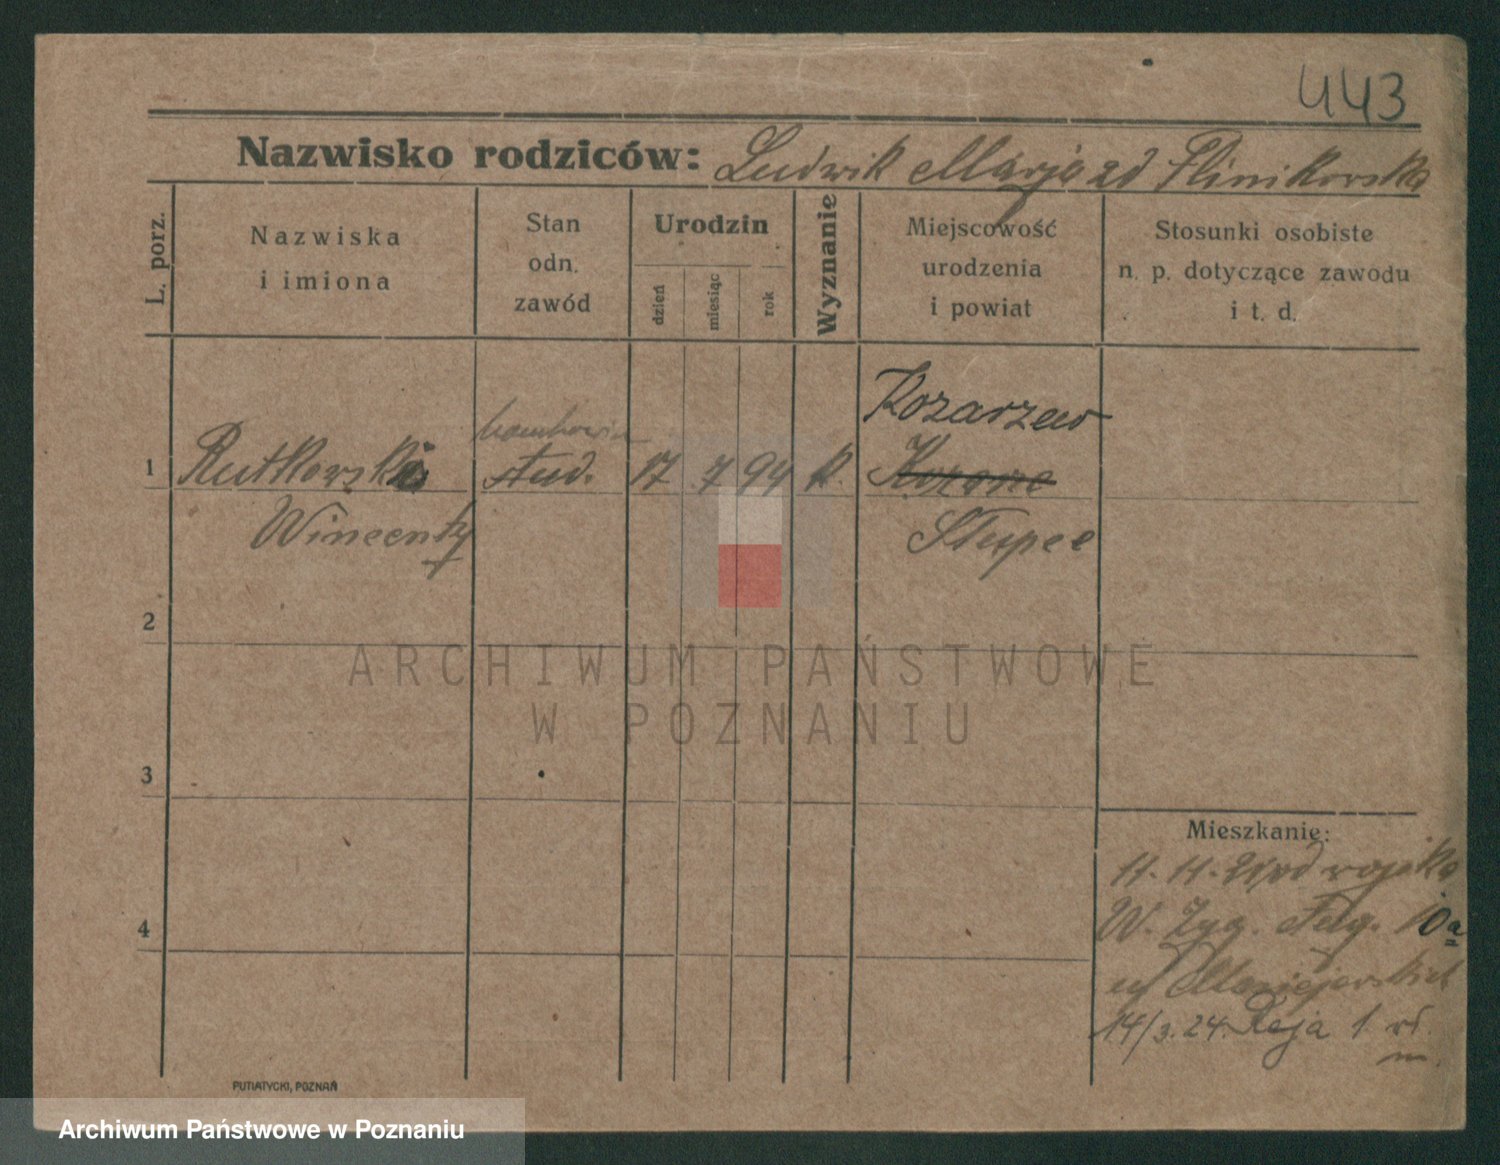 443
Nazwisko rodziców: Ludwik Marja zd Flinikorska
L. porz.
Nazwiska
i imiona
Stan
odn.
zawód
Urodzin
dzień
miesiąc
rok
Wyznanie
Miejscowość
urodzenia
i powiat
Stosunki osobiste
n. p. dotyczące zawodu
i t. d.
Kozarzew
1 Rutkowski stud. 17 7 94 k. Kozare
Wincenty Słupce
2
ARCHIWUM PAŃSTWOWE
W POZNANIU
3
Mieszkanie:
11. 11. od wojska
4
W. Zyg. Aug. 10a
u Maciejewskich
14/3.24. Reja 1
PUTIATYCKI, POZNAŃ
Archiwum Państwowe w Poznaniu